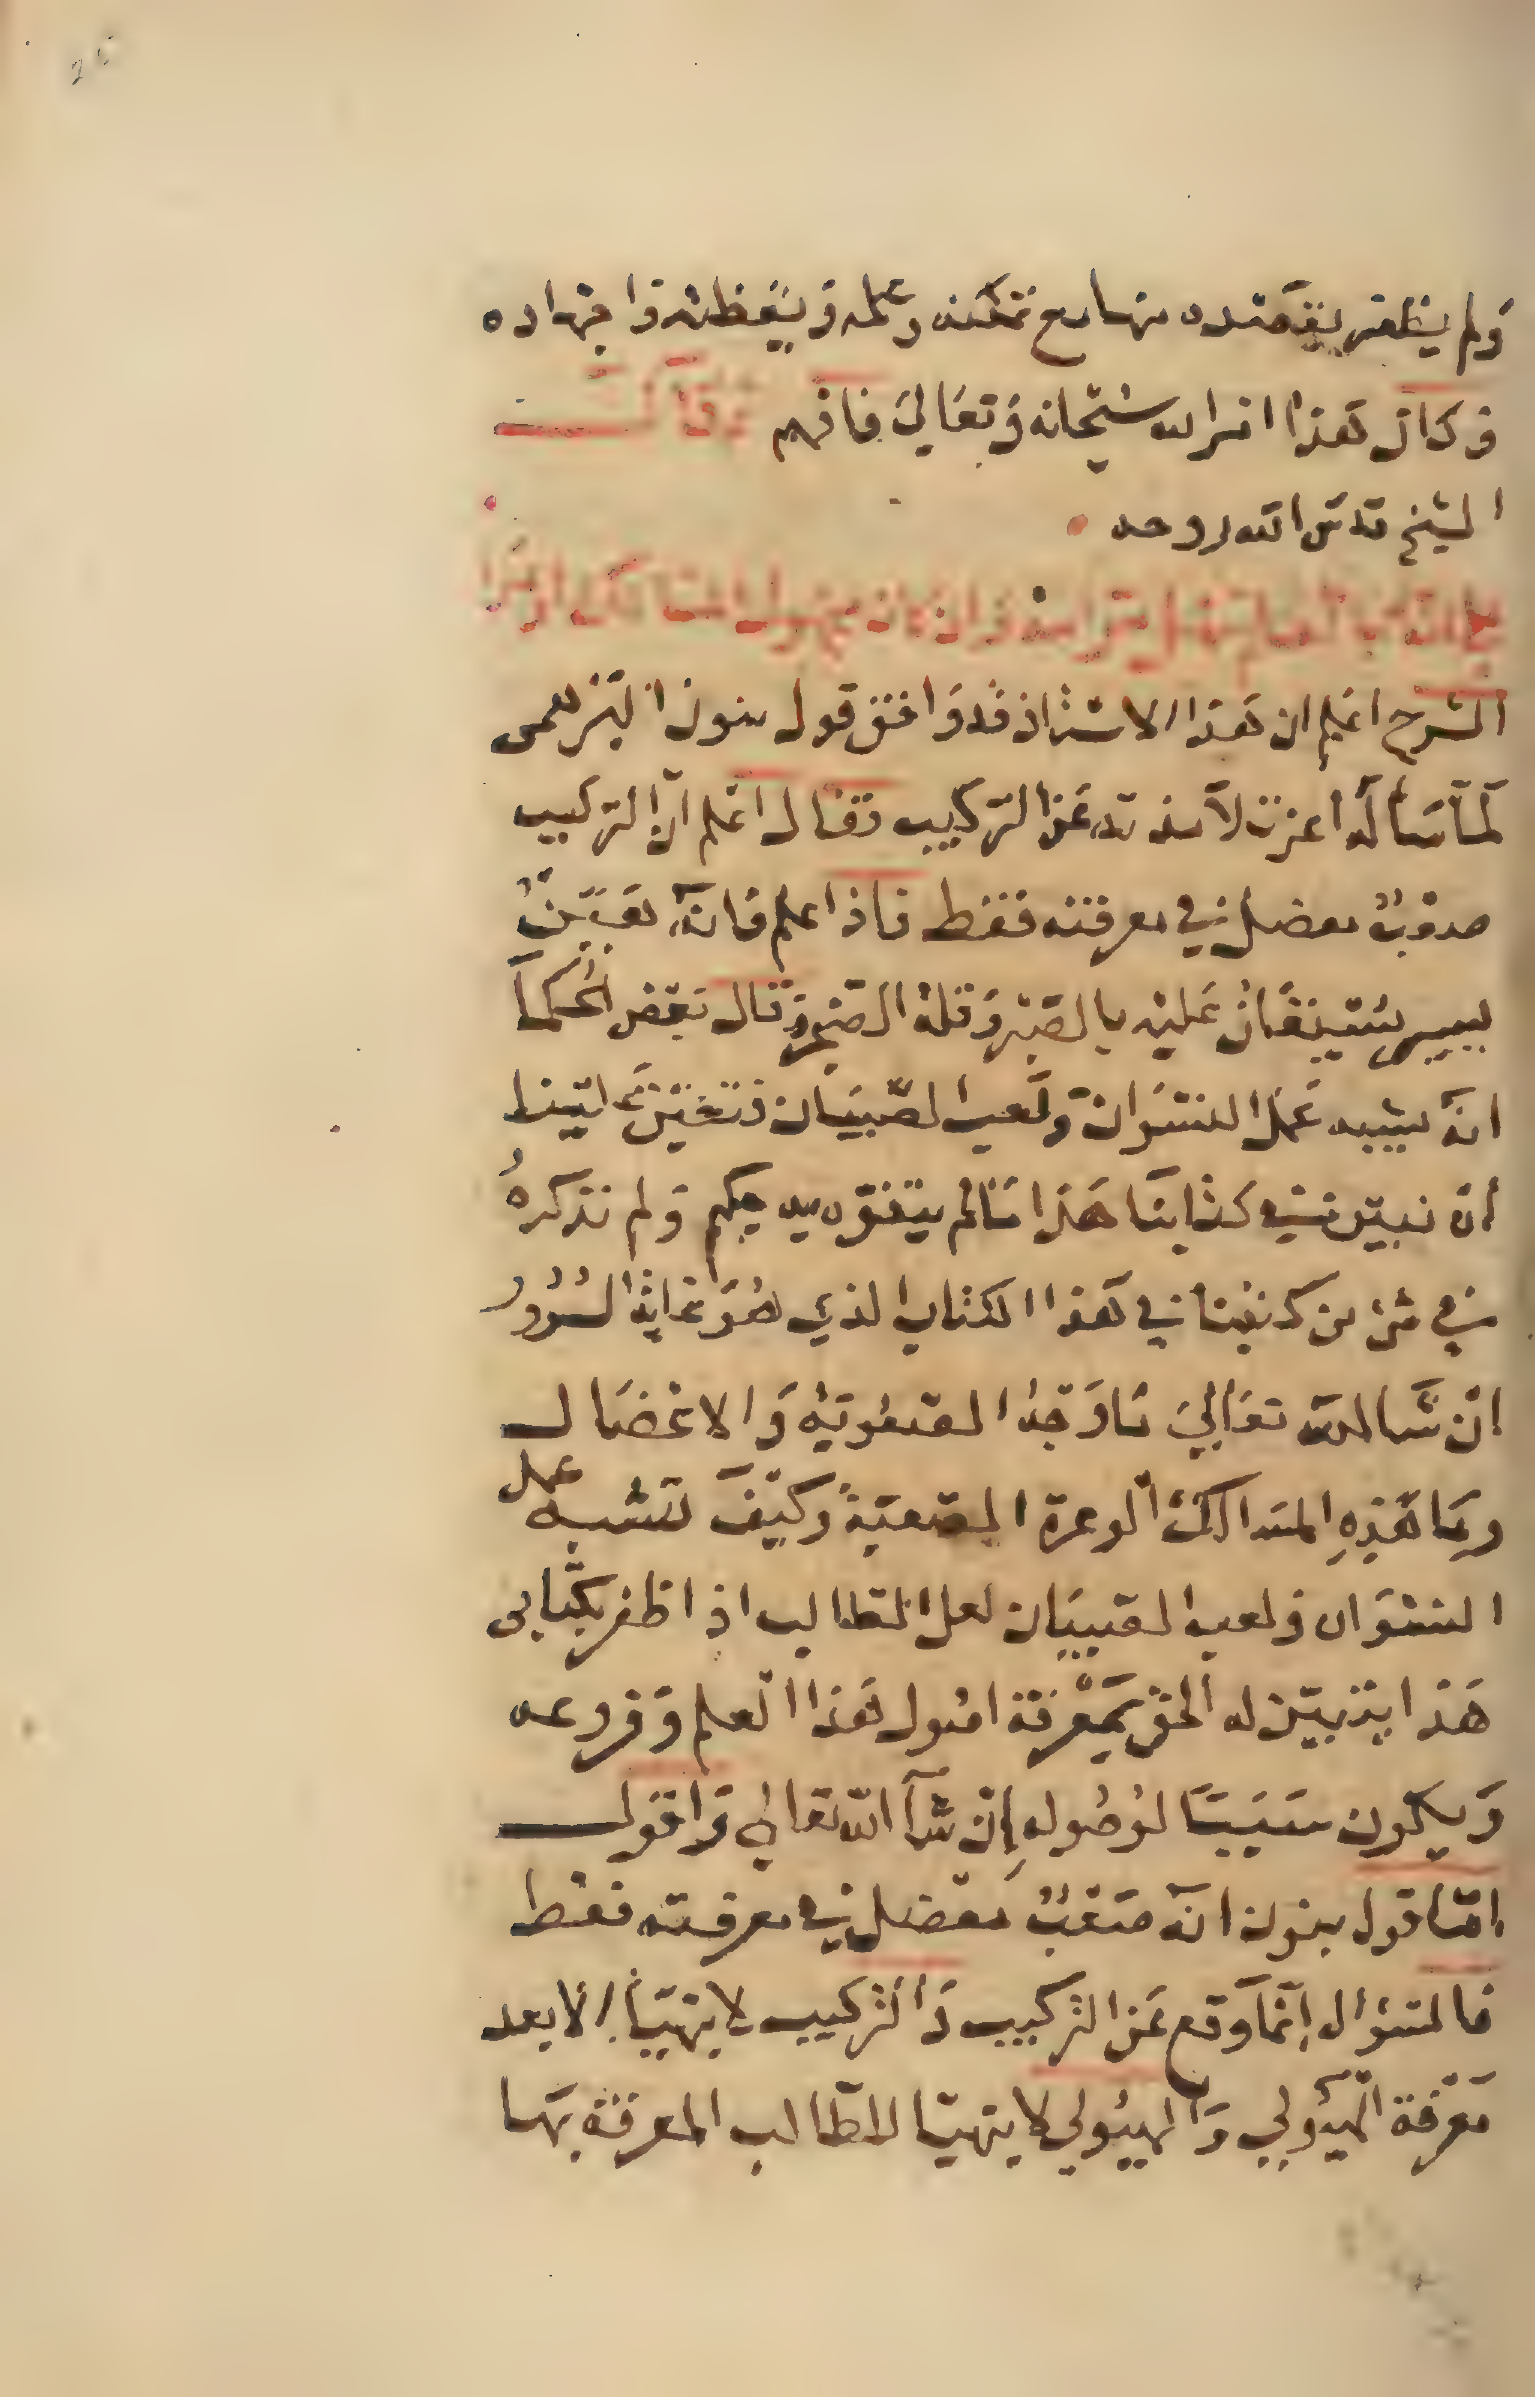 ولم يظفر بقصده منها مع تمكنه وعلمه ويقظته واجتهاده
وكان هذا امر الله سبحانه وتعالى فافهم وقال
الشيخ قدس الله روحه
الشرح اعلم ان هذا الاستاذ قد وافق قول بنون البزهمى
لما سأله عن التركيب فقال اعلم ان التركيب
صعوبٌ معضل في معرفته فقط فاذا علم فانه هَيّنٌ
يسير يستعان عليه بالصبر وقلة الضجر وقال بعض الحكما
انه يشبه عمل النسوان ولعب الصبيان فتعين علينا
ان نبين في كتابنا هذا ما لم يتفوه به حكيم ولم نذكره
في شى من كتبنا في هذا الكتاب الذي هو غاية السرور
ان شا الله تعالى ما وجه الصعوبة والاعضال
وما هذه المسالك الوعرة الصعبة وكيف تشبه عمل
النسوان ولعب الصبيان لعل الطالب اذا ظفر بكتابى
هذا يتبين له الحق بمعرفة اصول هذا العلم وفروعه
ويكون سببا لوصوله ان شآ الله تعالى واقول
اما قول بنون انه صعبٌ معضل في معرفته فقط
فالسؤال انما وقع عن التركيب والتركيب لا يتهيأ الا بعد
معرفة الهيولي والهيولي لا يتهيا للطالب المعرفة بها